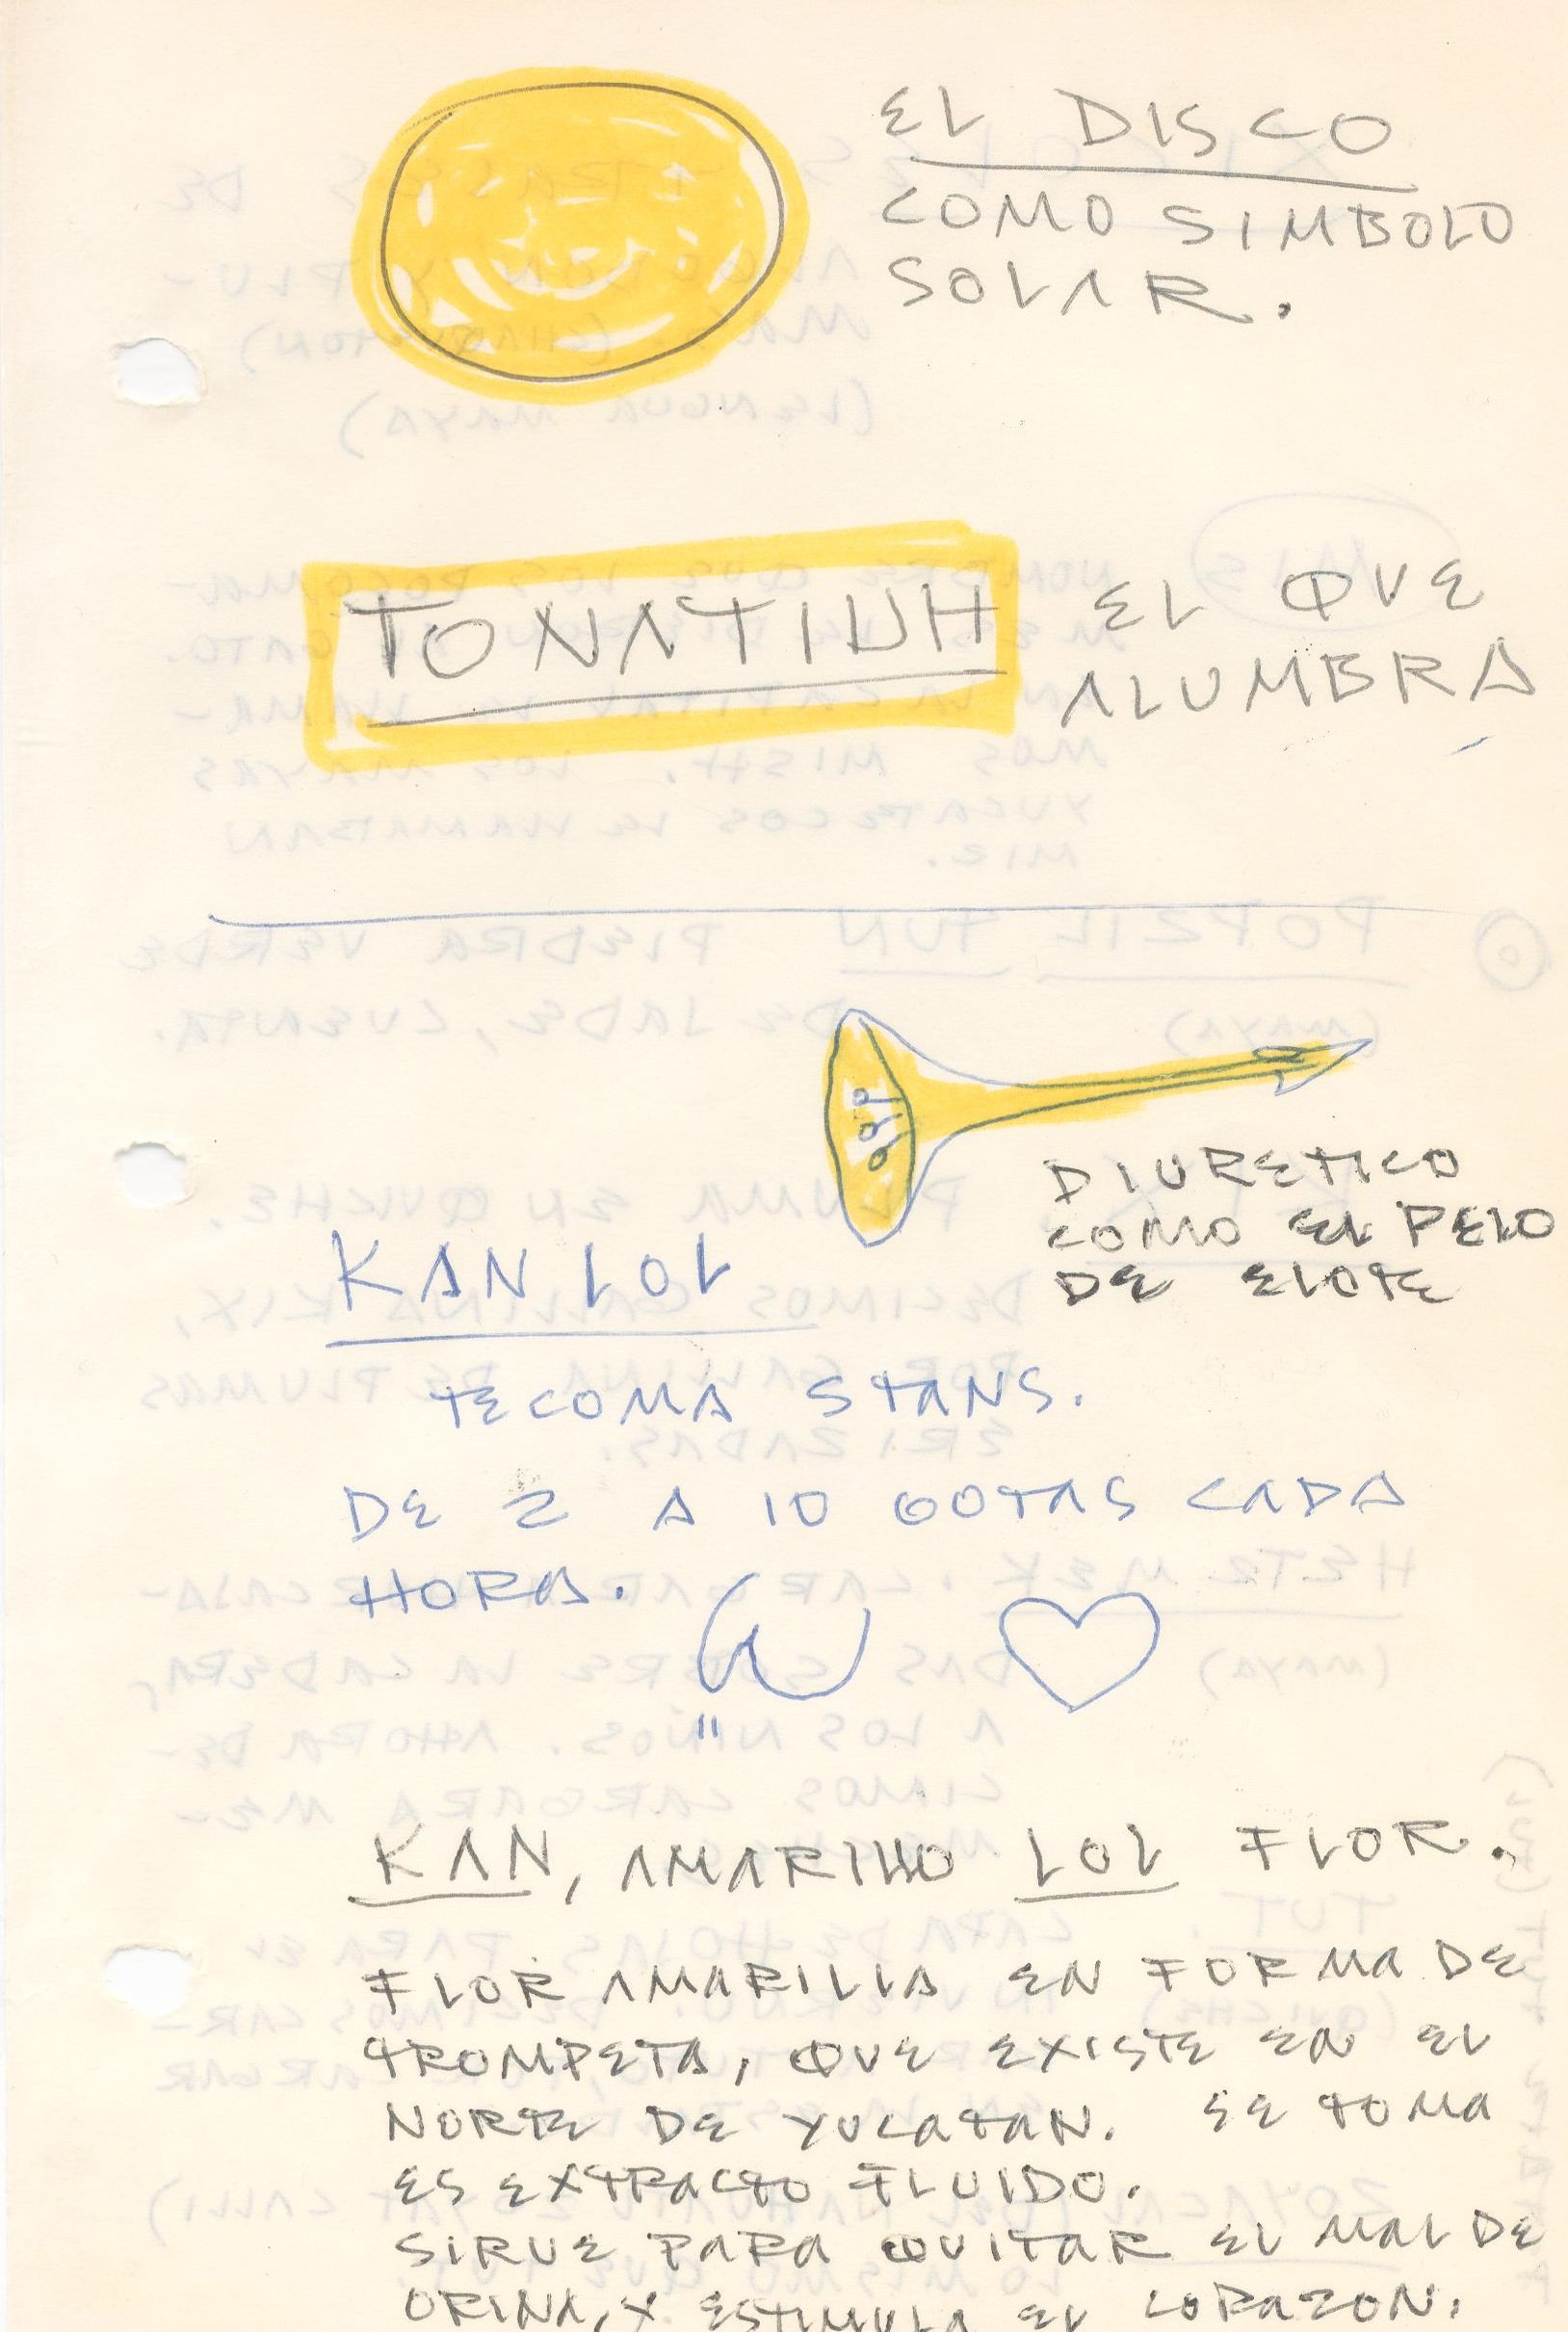 EL DISCO
COMO SIMBOLO
SOLAR.
TONATIUH
EL QUE
ALUMBRA
DIURETICO
COMO EL PELO
DE ELOTE
KAN LOL
TECOMA STANS.
DE 2 A 10 GOTAS CADA
HORA.
KAN, AMARILLO LOL FLOR.
FLOR AMARILLA EN FORMA DE
TROMPETA, QUE EXISTE EN EL
NORTE DE YUCATAN. SE TOMA
ES EXTRACTO FLUIDO.
SIRVE PARA QUITAR EL MAL DE
ORINA, Y ESTIMULA EL CORAZON.